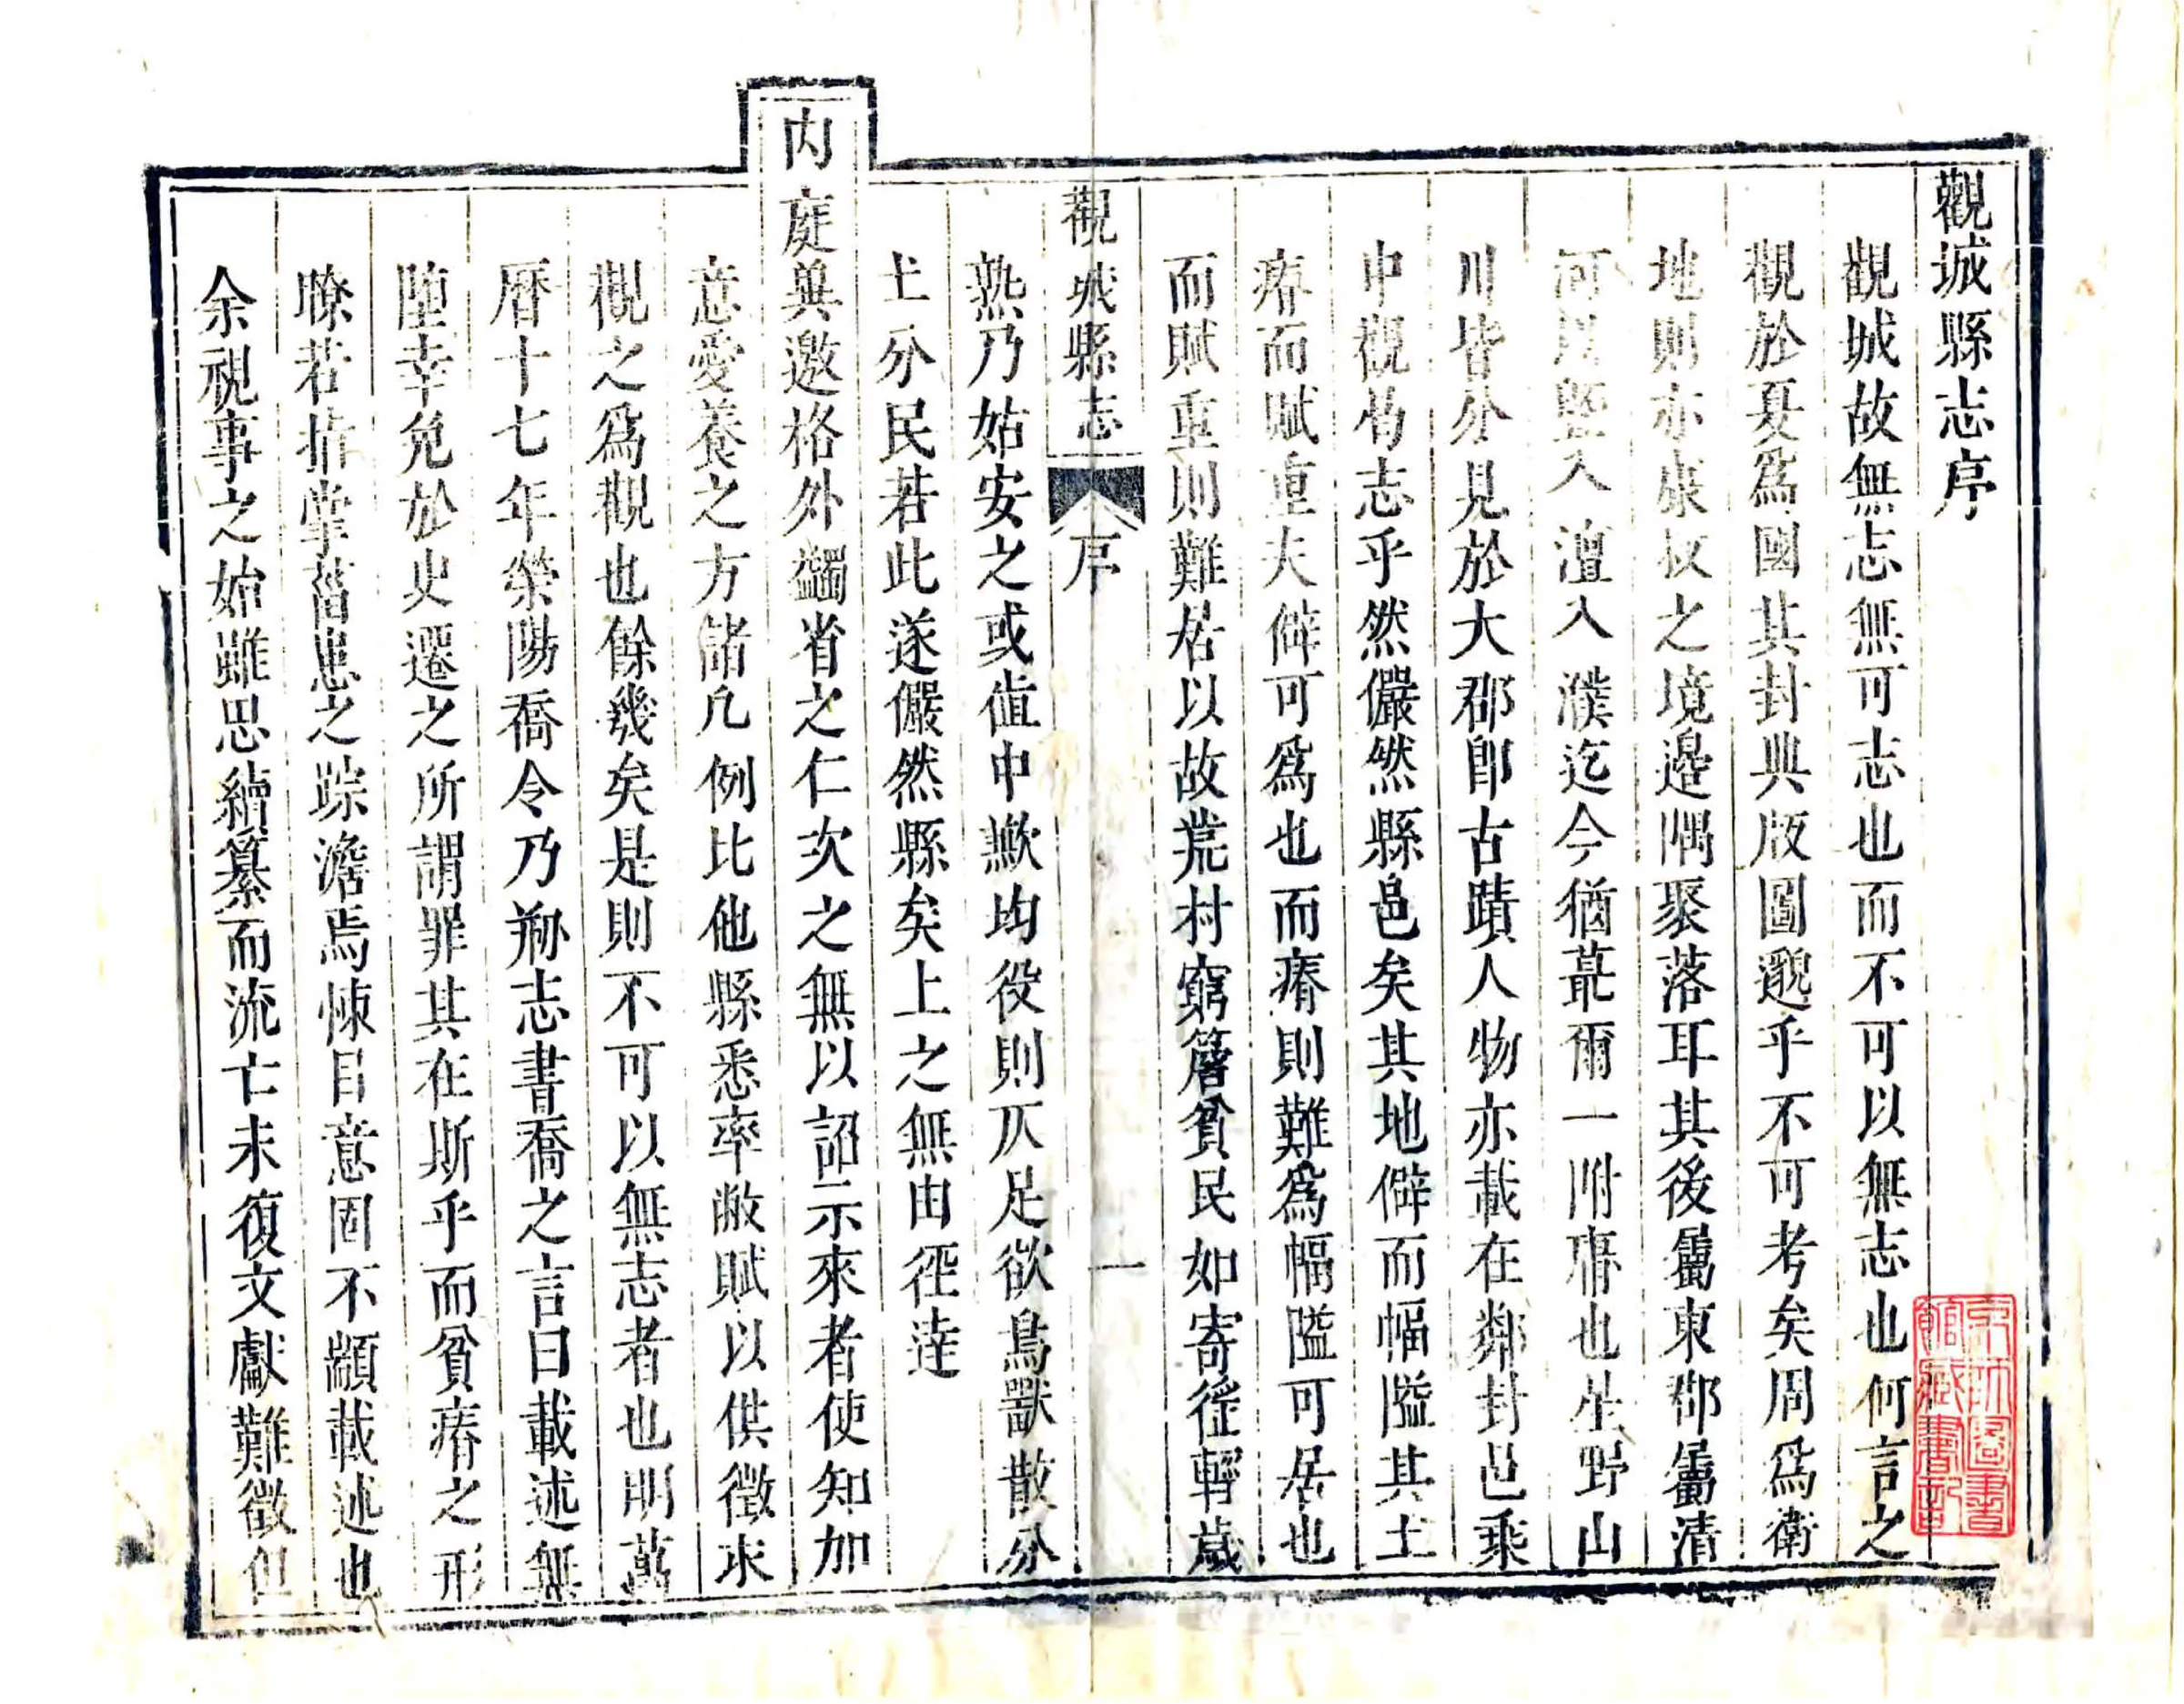 觀城縣志序
觀城故無志無可志也而不可以無志也何言之
觀於夏爲國其封典版圖邈乎不可考矣周爲衛
地則亦康叔之境邉隅聚落耳其後屬東郡屬清
河割暨入澶入濮迄今猶蕞爾一附庸也星野山
川皆分見於大郡卽古蹟人物亦載在鄰封邑乗
中觀曷志乎然儼然縣邑矣其地僻而幅隘其土
瘠而賦重夫僻可爲也而瘠則難爲幅隘可居也
而賦重則難居以故荒村窮簷貧民如寄徭輕歳
觀城縣志
序
一
熟乃姑安之或值中歉均役則仄足欲鳥獸散分
土分民若此遂儼然縣矣上之無由徑達
内庭冀邀格外蠲省之仁次之無以詔示來者使知加
意愛養之方儲凡例比他縣悉率敝賦以供徵求
觀之爲觀也餘幾矣是則不可以無志者也明萬
曆十七年滎陽喬令乃剏志書喬之言曰載述無
陞幸免於史遷之所謂罪其在斯乎而貧瘠之形
瞭若指掌菑患之踪澹焉悚目意固不顓載述也
余視事之始雖思續纂而流亡未復文獻難徵但
京師圖書
館藏書記